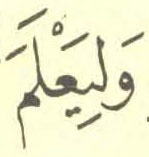 وَلِيَعْلَمَ